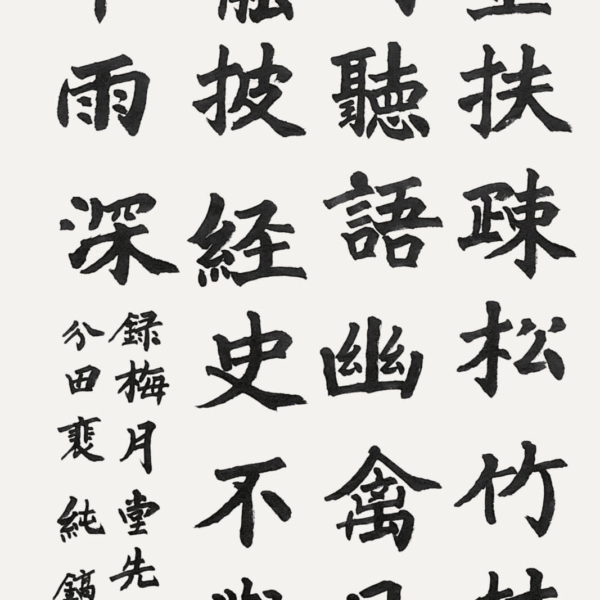 扶疎松竹
聽語幽禽
披経史不
雨深
録梅月堂先
分田裵純